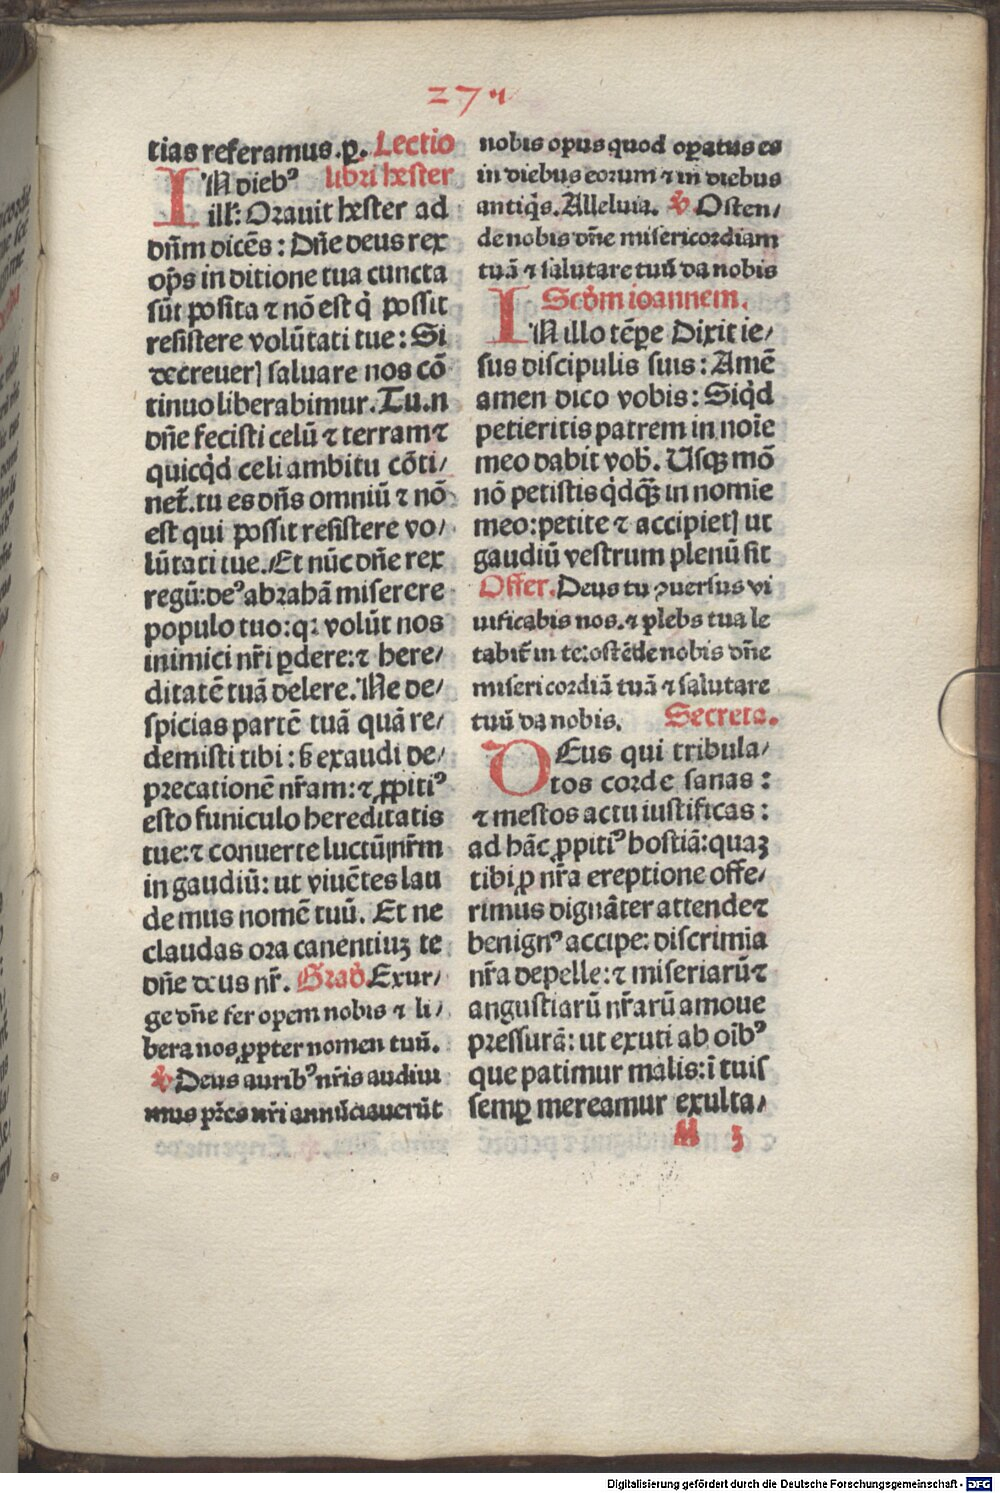 27
tias referamus.ꝑ. Lectio
IN dieb⁹ libri hester
ill̄: Orauit hester ad
dn̄m dicēs: Dn̄e deus rex
op̄s in ditione tua cuncta
sūt posita ⁊ nō est q̇ possit
resistere volūtati tue: Si
decreuerꝭ saluare nos cō
tinuo liberabimur. Tu.n
dn̄e fecisti celū ⁊ terram ⁊
quicq̇d celi ambitu cōti/
net̄. tu es dn̄s omniū ⁊ nō
est qui possit resistere vo/
lūtati tue. Et nūc dn̄e rex
regū: de⁹ abrahā miserere
populo tuo: qꝛ volūt nos
inimici nr̄i ꝑdere: ⁊ here/
ditatē tuā delere. Ne de/
spicias partē tuā quā re/
demisti tibi: ß exaudi de/
precationē nr̄am: ⁊ ꝓpiti⁹
esto funiculo hereditatis
tue: ⁊ conuerte luctū nr̄m
in gaudiū: ut viuētes lau
demus nomē tuū. Et ne
claudas ora canentiuꝫ te
dn̄e deus nr̄. Grad̄. Exur/
ge dn̄e fer opem nobis ⁊ li/
bera nos ꝓpter nomen tuū.
℣ Deus aurib⁹ nr̄is audiui
mus pr̄es nr̄i annūciauerūt
nobis opus quod opatus es
in diebus eorum ⁊ in diebus
antiq̇s. Alleluia. ℣ Osten/
de nobis dn̄e misericordiam
tuā ⁊ salutare tuū da nobis
Scd̄m ioannem.
IN illo tēꝑe Dixit ie/
sus discipulis suis: Amē
amen dico vobis: Siq̇d
petieritis patrem in noīe
meo dabit vob̄. Usqꝫ mō
nō petistis q̇dqꝫ̄ in nomie
meo: petite ⁊ accipietꝭ ut
gaudiū vestrum plenū sit
Offer. Deus tu ꝯuersus vi
uificabis nos. ⁊ plebs tua le
tabit̄ in te: ostēde nobis dn̄e
misericordiā tuā ⁊ salutare
tuū da nobis. Secreta.
DEus qui tribula/
tos corde sanas:
⁊ mestos actu iustificas:
ad hāc ꝓpiti⁹ hostiā: quaꝫ
tibi ꝓ nr̄a ereptione offe/
rimus dignāter attende ⁊
benign⁹ accipe: discrimīa
nr̄a depelle: ⁊ miseriarū ⁊
angustiarū nr̄arū amoue
pressurā: ut exuti ab oīb⁹
que patimur malis: ī tuis
semꝑ mereamur exulta/
M 3
Digitalisierung gefördert durch die Deutsche Forschungsgemeinschaft - DFG